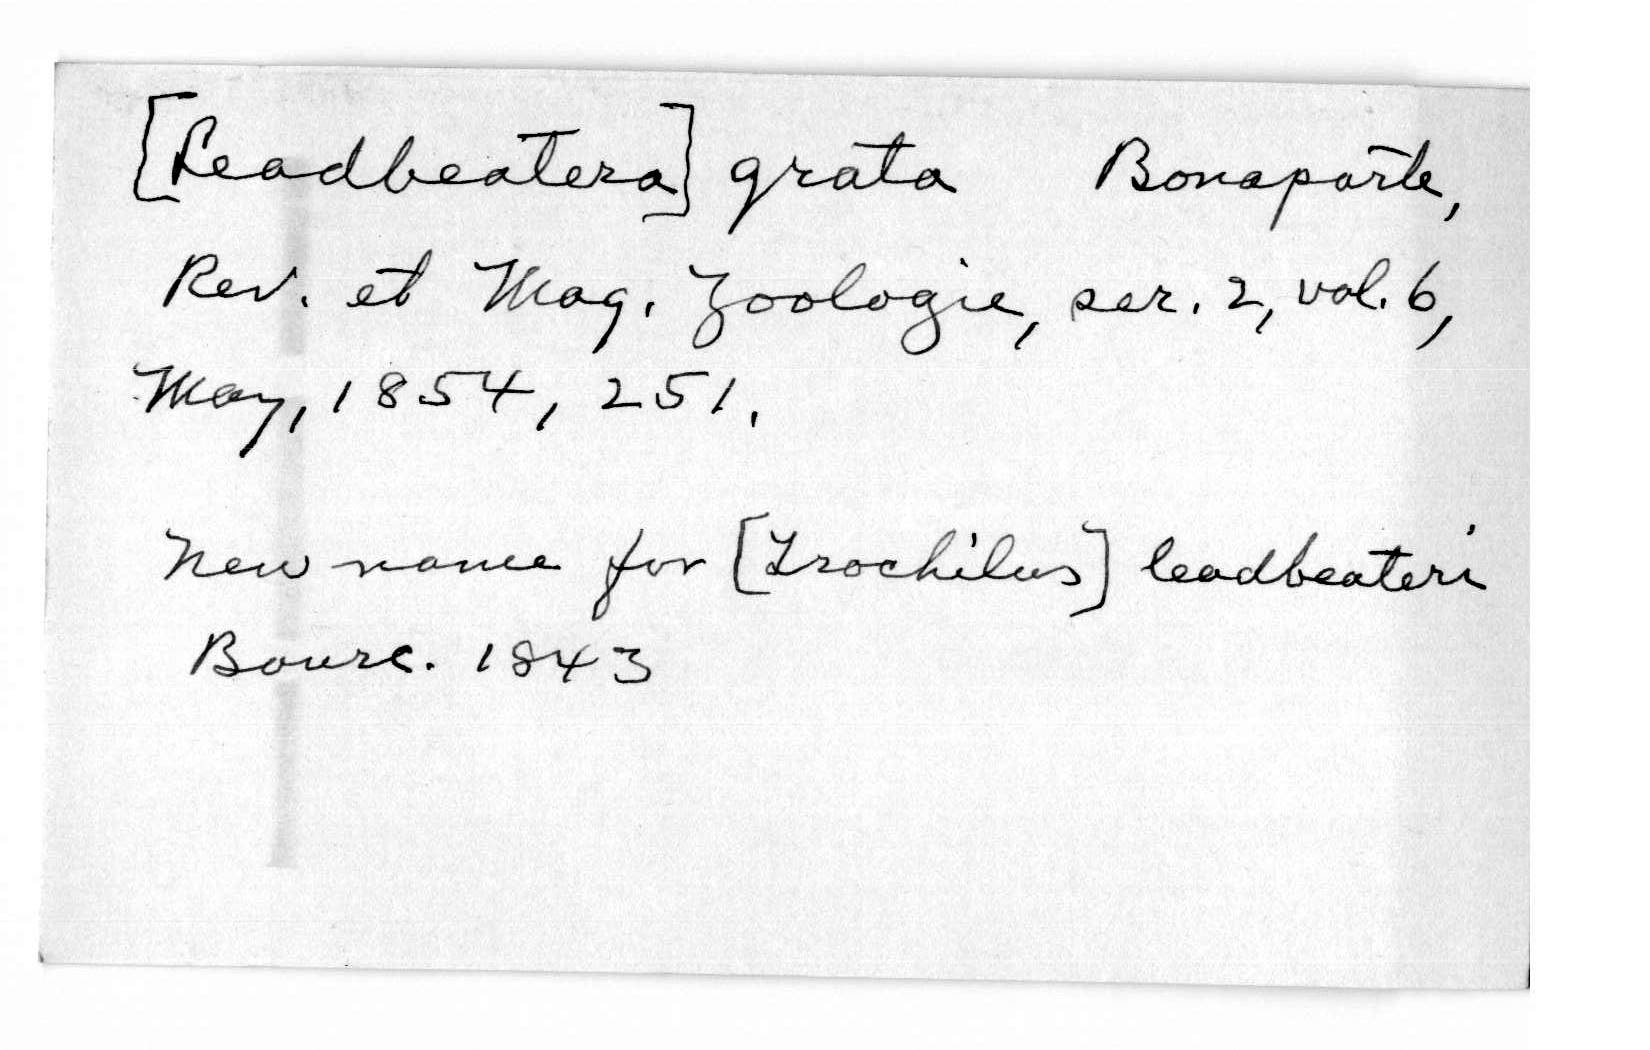 [Leadbeatera] grata Bonaparte,
Rev. et Mag. Zoologie, ser. 2, vol. 6,
May, 1854, 251.
New name for [Trochilus] leadbeateri
Bourc. 1843